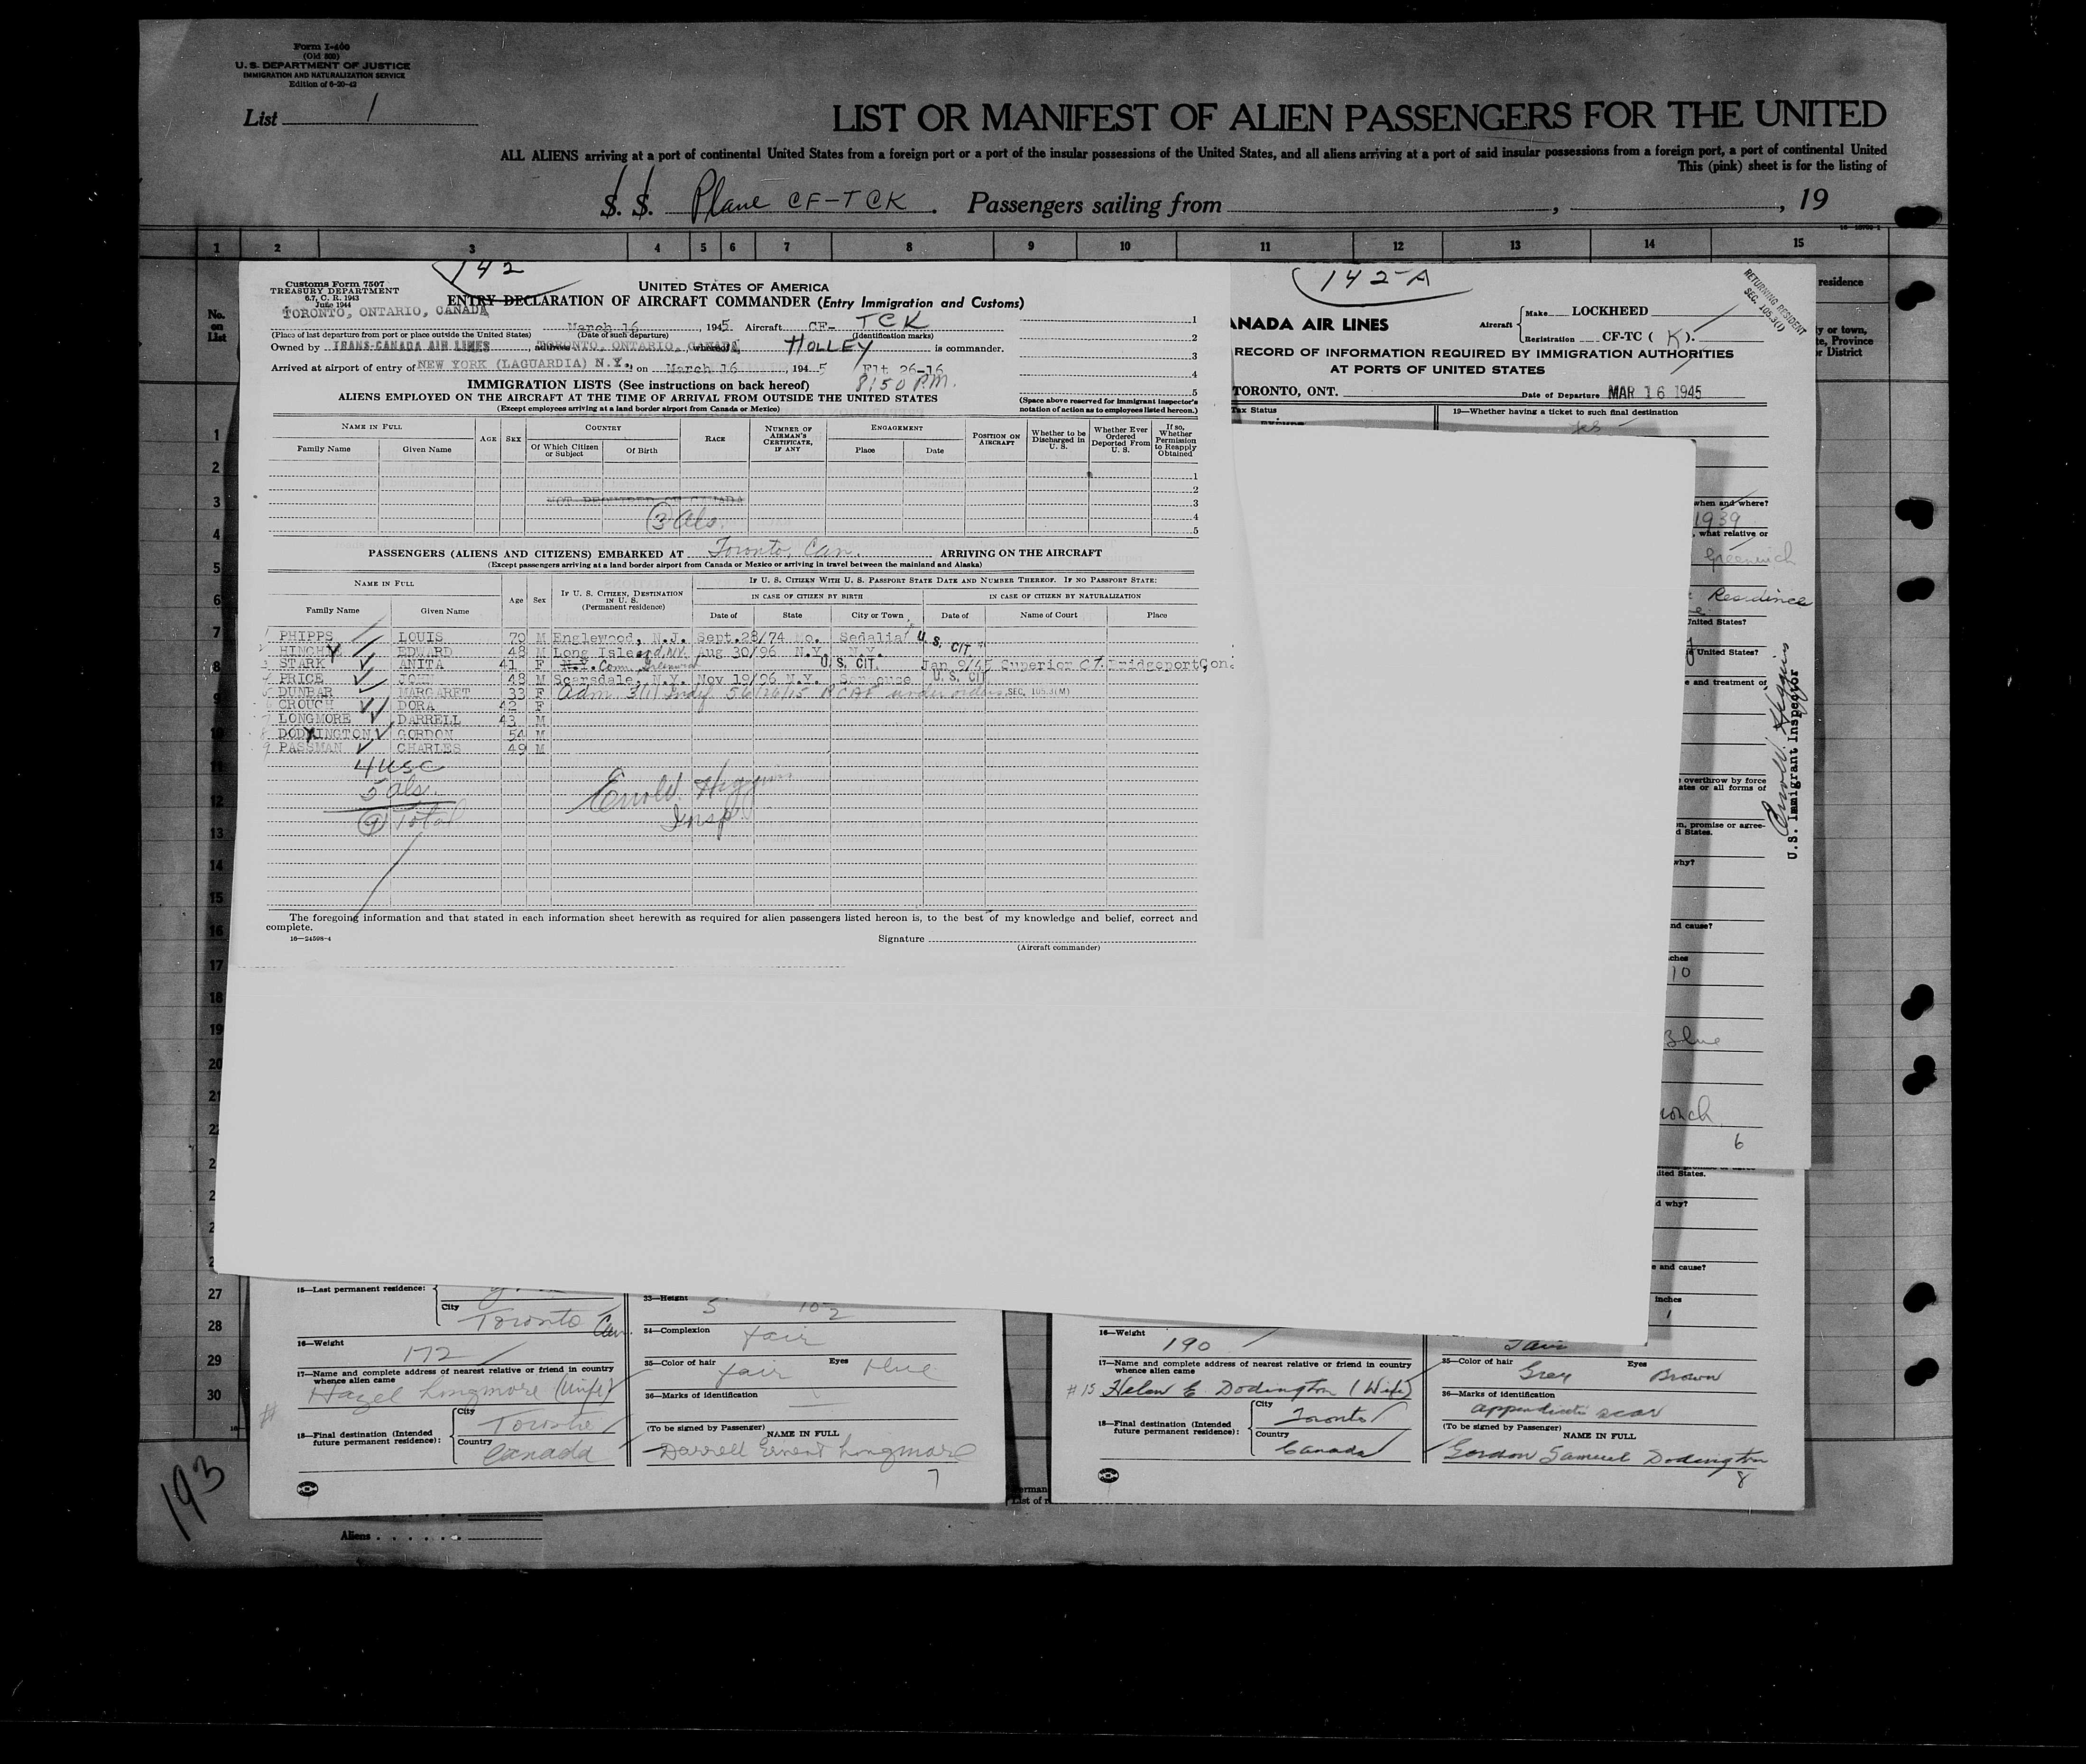 Form I-400
(Old 500)
U. S. DEPARTMENT OF JUSTICE
IMMIGRATION AND NATURALIZATION SERVICE
Edition of 6-20-42
List 1
LIST OR MANIFEST OF ALIEN PASSENGERS FOR THE UNITED
ALL ALIENS arriving at a port of continental United States from a foreign port or a port of the insular possessions of the United States, and all aliens arriving at a port of said insular possessions from a foreign port, a port of continental United
This (pink) sheet is for the listing of
S. S. Plane CF-TCK. Passengers sailing from , , 19
1 2 3 4 5 6 7 8 9 10 11 12 13 14 15
No. on List
142
Customs Form 7507
TREASURY DEPARTMENT
6.7, C. R. 1943
June 1944
UNITED STATES OF AMERICA
ENTRY DECLARATION OF AIRCRAFT COMMANDER (Entry Immigration and Customs)
TORONTO, ONTARIO, CANADA March 16, 1945 Aircraft CF- TCK
(Place of last departure from port or place outside the United States) (Date of such departure) (Identification marks)
Owned by TRANS-CANADA AIR LINES, address TORONTO, ONTARIO, CANADA, whereof HOLLEY is commander.
Arrived at airport of entry of NEW YORK (LAGUARDIA) N.Y., on March 16, 1945 Flt 26-16
8:50 P.M.
IMMIGRATION LISTS (See instructions on back hereof)
ALIENS EMPLOYED ON THE AIRCRAFT AT THE TIME OF ARRIVAL FROM OUTSIDE THE UNITED STATES
(Except employees arriving at a land border airport from Canada or Mexico)
1
2
3
4
5
(Space above reserved for Immigrant Inspector's notation of action as to employees listed hereon.)
NAME IN FULL AGE SEX COUNTRY RACE NUMBER OF AIRMAN'S CERTIFICATE, IF ANY ENGAGEMENT POSITION ON AIRCRAFT Whether to be Discharged in U. S. Whether Ever Ordered Deported From U. S. If so, Whether Permission to Reapply Obtained
Family Name Given Name Of Which Citizen or Subject Of Birth Place Date
1
2
NOT REQUIRED OF CANADA 3
3 Als. 4
5
PASSENGERS (ALIENS AND CITIZENS) EMBARKED AT Toronto, Can. ARRIVING ON THE AIRCRAFT
(Except passengers arriving at a land border airport from Canada or Mexico or arriving in travel between the mainland and Alaska)
NAME IN FULL Age Sex IF U. S. CITIZEN, DESTINATION IN U. S. (Permanent residence) IF U. S. CITIZEN WITH U. S. PASSPORT STATE DATE AND NUMBER THEREOF. IF NO PASSPORT STATE:
IN CASE OF CITIZEN BY BIRTH IN CASE OF CITIZEN BY NATURALIZATION
Family Name Given Name Date of State City or Town Date of Name of Court Place
1 PHIPPS LOUIS 70 M Englewood, N.J. Sept.28/74 Mo. Sedalia U. S. CIT.
2 HINCHY EDWARD 48 M Long Island, NY. Aug 30/96 N.Y. N.Y.
3 STARK ANITA 41 F N.Y. Conn. Greenwich U. S. CIT. Jan 9/45 Superior CT. Bridgeport Con.
4 PRICE JOHN 48 M Scarsdale, N.Y. Nov 19/96 N.Y. U. S. CIT
5 DUNBAR MARGARET 33 F Adm. 3(1) RCAF under orders SEC. 105.3(M)
6 CROUCH DORA 42 F
7 LONGMORE DARRELL 43 M
8 DODINGTON GORDON 54 M
9 PASSMAN CHARLES 49 M
4 USC
5 als.
9 Total
Errol W. Higgins
Insp
The foregoing information and that stated in each information sheet herewith as required for alien passengers listed hereon is, to the best of my knowledge and belief, correct and complete.
16—24598-4
Signature
(Aircraft commander)
142-A
RETURNING RESIDENT
SEC. 105.3(1)
ANADA AIR LINES
Aircraft Make LOCKHEED
Registration CF-TC ( K ).
RECORD OF INFORMATION REQUIRED BY IMMIGRATION AUTHORITIES
AT PORTS OF UNITED STATES
TORONTO, ONT. Date of Departure MAR 16 1945
Tax Status 19—Whether having a ticket to such final destination
yes
when and where?
1939
, what relative or
Greenwich
Residence
United States?
United States?
e and treatment of
overthrow by force
ates or all forms of
on, promise or agree-
d States.
why?
nd cause?
ches
10
Blue
6
Errol W. Higgins
U.S. Immigrant Inspector
residence
y or town,
te, Province
r District
ited States.
d why?
e and cause?
inches
1
15—Last permanent residence:
City Toronto Can.
16—Weight 172
17—Name and complete address of nearest relative or friend in country whence alien came
Hazel Longmore (Wife)
18—Final destination (Intended future permanent residence):
City Toronto
Country Canada
33—Height 5 10½
34—Complexion fair
35—Color of hair fair Eyes blue
36—Marks of identification
(To be signed by Passenger) NAME IN FULL
Darrell Ernest Longmore
7
16—Weight 190
17—Name and complete address of nearest relative or friend in country whence alien came
#15 Helen E. Dodington (Wife)
18—Final destination (Intended future permanent residence):
City Toronto
Country Canada
Fair
35—Color of hair Grey Eyes Brown
36—Marks of identification
appendicitis scar
(To be signed by Passenger) NAME IN FULL
Gordon Samuel Dodington
8
193
Aliens